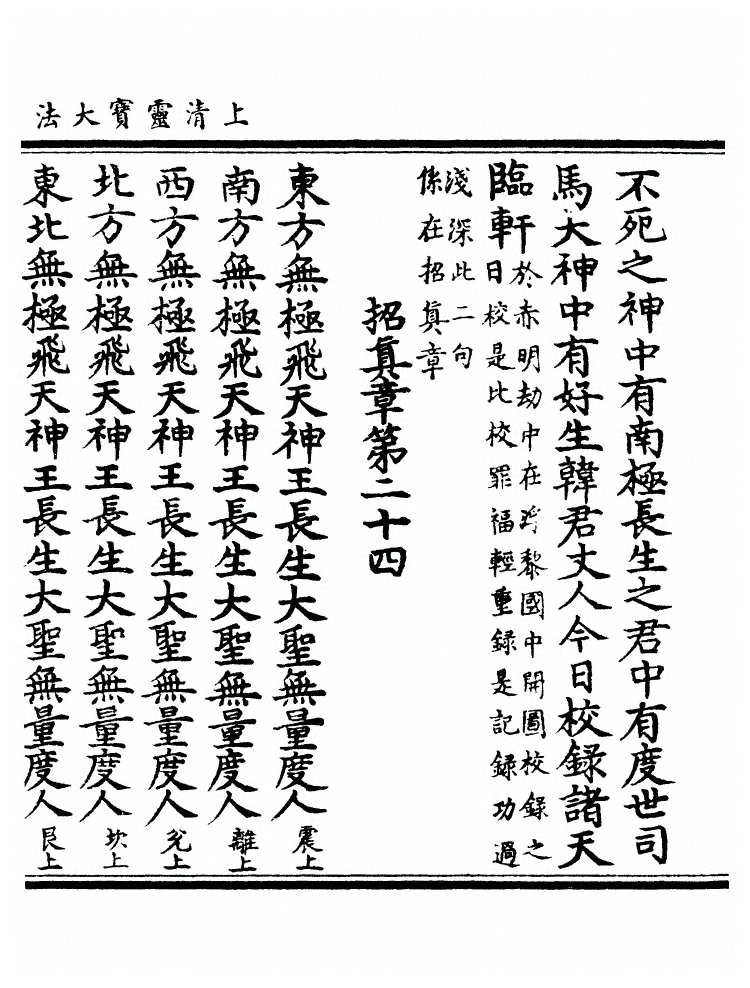 上清靈寶大法
不死之神中有南極長生之君中有度世司
馬大神中有好生韓君丈人今日校録諸天
臨軒
於赤明劫中在浮黎國中開圖校録之
日校是比校罪福輕重録是記録功過
淺深此二句
係在招真章
招真章第二十四
東方無極飛天神王長生大聖無量度人震上
南方無極飛天神王長生大聖無量度人離上
西方無極飛天神王長生大聖無量度人兊上
北方無極飛天神王長生大聖無量度人坎上
東北無極飛天神王長生大聖無量度人艮上